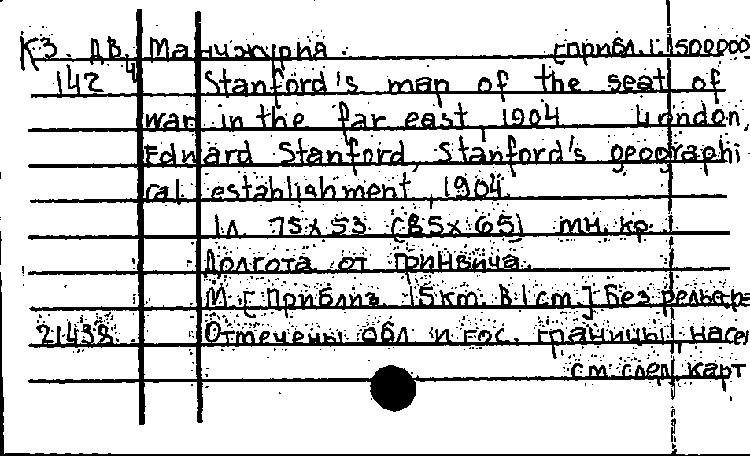 КЗ. ДВ, 4 Манчжурия. [прибл. 1:1500000
142 Stanford's map of the seat of
war in the far east, 1904 London,
Edward Stanford, Stanford's geographi
cal establishment, 1904.
1л. 75x53 (85x65) мн. кр.
Долгота от Гринвича.
М. [Приблиз. 15km. В 1cm.] Без рельефа
21438 Отмечены обл. и гос. границы, насел
см. след. карт